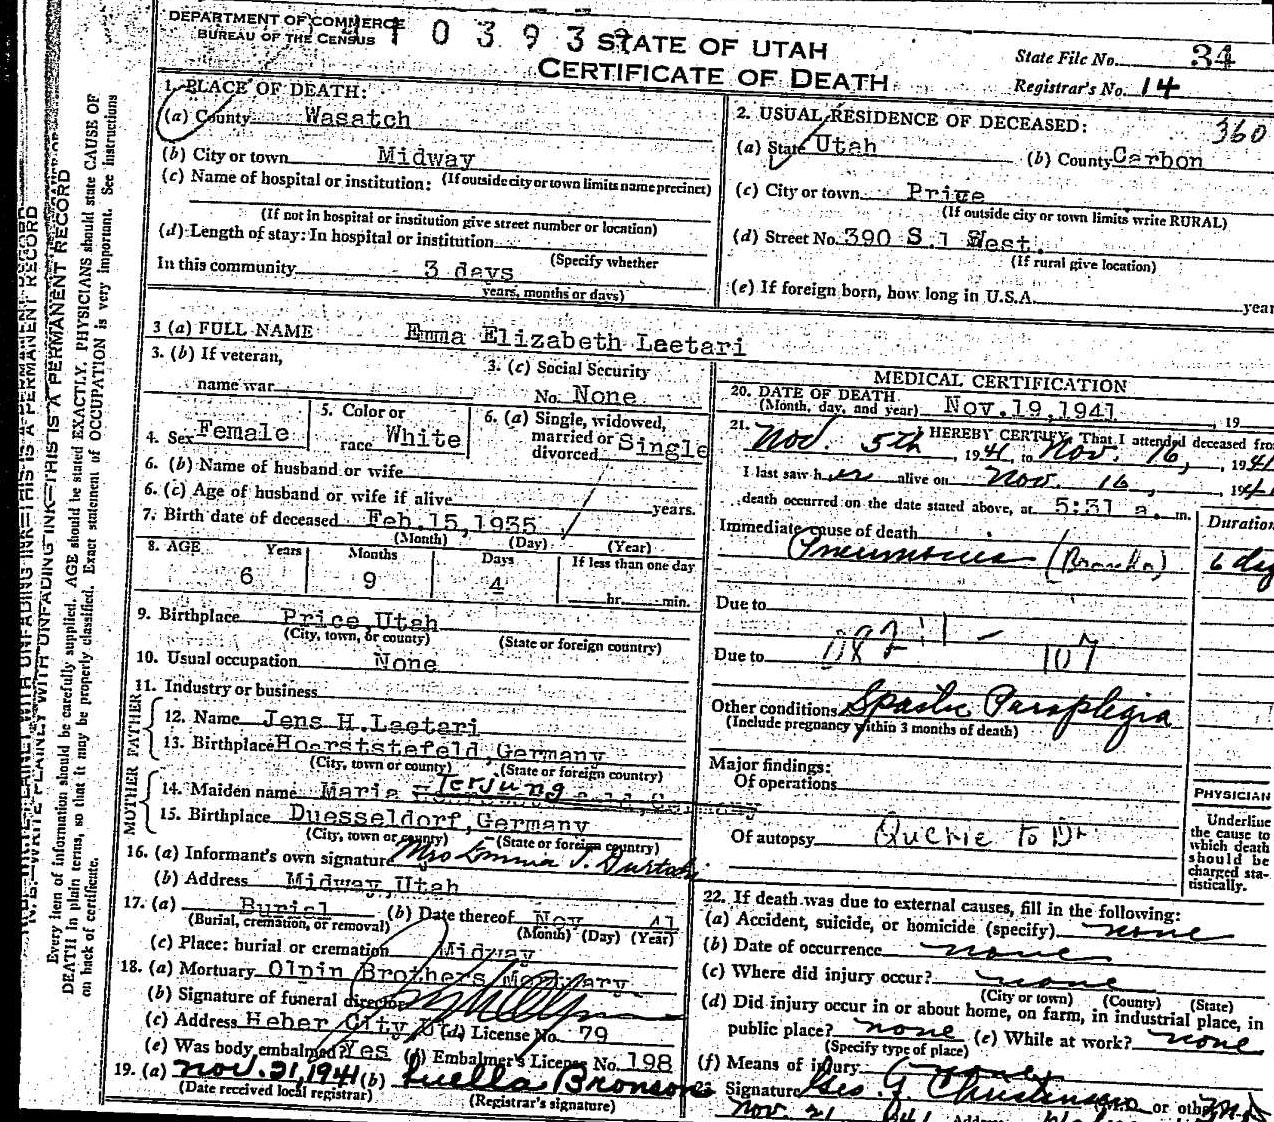 DEPARTMENT OF COMMERCE
BUREAU OF THE CENSUS
STATE OF UTAH
CERTIFICATE OF DEATH
State File No. 34
Registrar's No. 14
1. PLACE OF DEATH:
(a) County Wasatch
(b) City or town Midway
(If outside city or town limits name precinct)
(c) Name of hospital or institution:
(If not in hospital or institution give street number or location)
(d) Length of stay: In hospital or institution
(Specify whether
In this community 3 days
years, months or days)
2. USUAL RESIDENCE OF DECEASED: 360
(a) State Utah (b) County Carbon
(c) City or town Price
(If outside city or town limits write RURAL)
(d) Street No. 390 S.1 West.
(If rural give location)
(e) If foreign born, how long in U.S.A. year
3 (a) FULL NAME Emma Elizabeth Laetari
3. (b) If veteran,
name war
3. (c) Social Security
No. None
4. Sex Female
5. Color or
race White
6. (a) Single, widowed,
married or
divorced Single
6. (b) Name of husband or wife
6. (c) Age of husband or wife if alive years.
7. Birth date of deceased Feb.15,1935
(Month) (Day) (Year)
8. AGE Years Months Days If less than one day
6 9 4 hr. min.
9. Birthplace Price,Utah
(City, town, or county) (State or foreign country)
10. Usual occupation None
11. Industry or business
FATHER
12. Name Jens H.Laetari
13. Birthplace Hoerststefeld,Germany
(City, town or county) (State or foreign country)
MOTHER
14. Maiden name Maria Terjung
15. Birthplace Duesseldorf,Germany
(City, town or county) (State or foreign country)
16. (a) Informant's own signature Mrs
(b) Address Midway,Utah
17. (a) Burial (b) Date thereof Nov 41
(Burial, cremation, or removal) (Month) (Day) (Year)
(c) Place: burial or cremation Midway
18. (a) Mortuary Olpin Brothers Mortuary
(b) Signature of funeral director
(c) Address Heber City U (d) License No. 79
(e) Was body embalmed? Yes (f) Embalmer's License No. 198
19. (a) Nov. 21, 1941 (b) Luella Bronson
(Date received local registrar) (Registrar's signature)
MEDICAL CERTIFICATION
20. DATE OF DEATH
(Month, day, and year) Nov.19,1941 , 19
21. I HEREBY CERTIFY, That I attended deceased from
Nov. 5th, 1941, to Nov. 16, 1941
I last saw her alive on Nov. 16, 194
death occurred on the date stated above, at 5:31 a. m.
Duration
Immediate cause of death
Pneumonia (Broncho) 6 day
Due to
Due to 107
Other conditions Spastic Paraplegia
(Include pregnancy within 3 months of death)
Major findings:
Of operations
Of autopsy Querie to Dr
PHYSICIAN
Underline
the cause to
which death
should be
charged sta-
tistically.
22. If death was due to external causes, fill in the following:
(a) Accident, suicide, or homicide (specify) none
(b) Date of occurrence none
(c) Where did injury occur? none
(City or town) (County) (State)
(d) Did injury occur in or about home, on farm, in industrial place, in
public place? none (e) While at work? none
(Specify type of place)
(f) Means of injury none
23. Signature Geo. G. Christensen (M.D. or other)
Nov. 21
N. B.—WRITE PLAINLY WITH UNFADING INK—THIS IS A PERMANENT RECORD
Every item of information should be carefully supplied. AGE should be stated EXACTLY. PHYSICIANS should state CAUSE OF
DEATH in plain terms, so that it may be properly classified. Exact statement of OCCUPATION is very important. See Instructions
on back of certificate.